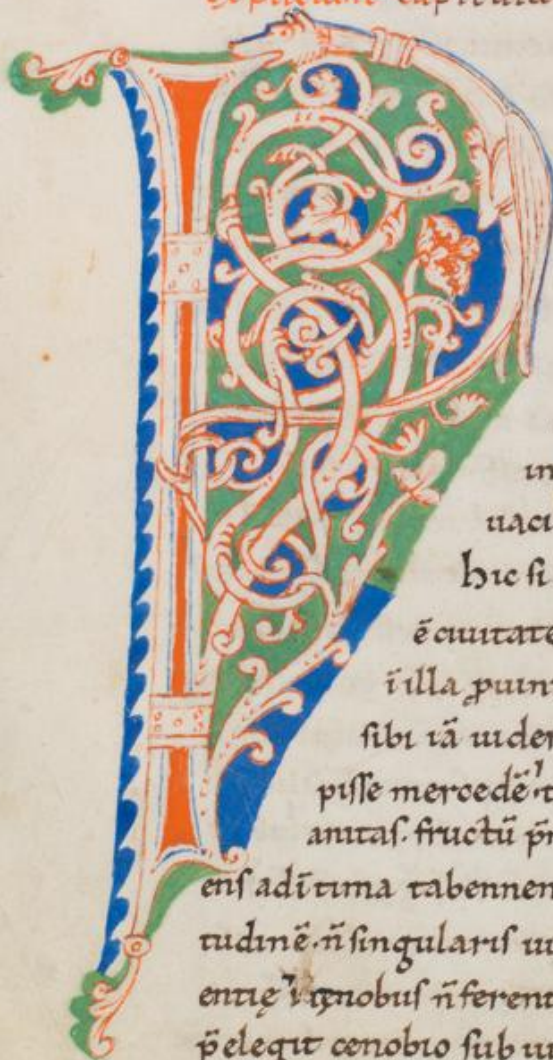 Expliciunt capitula
P
in
uacu
hic si
ē ciuitate
ī illa ꝓuin
sibi iā uider
pisse mercedē.
anitas. fructū
ens adī tima tabennen
tudinē. n̄ singularis
entię ī cęnobus n̄ ferent
p̄elegit cenobio sub